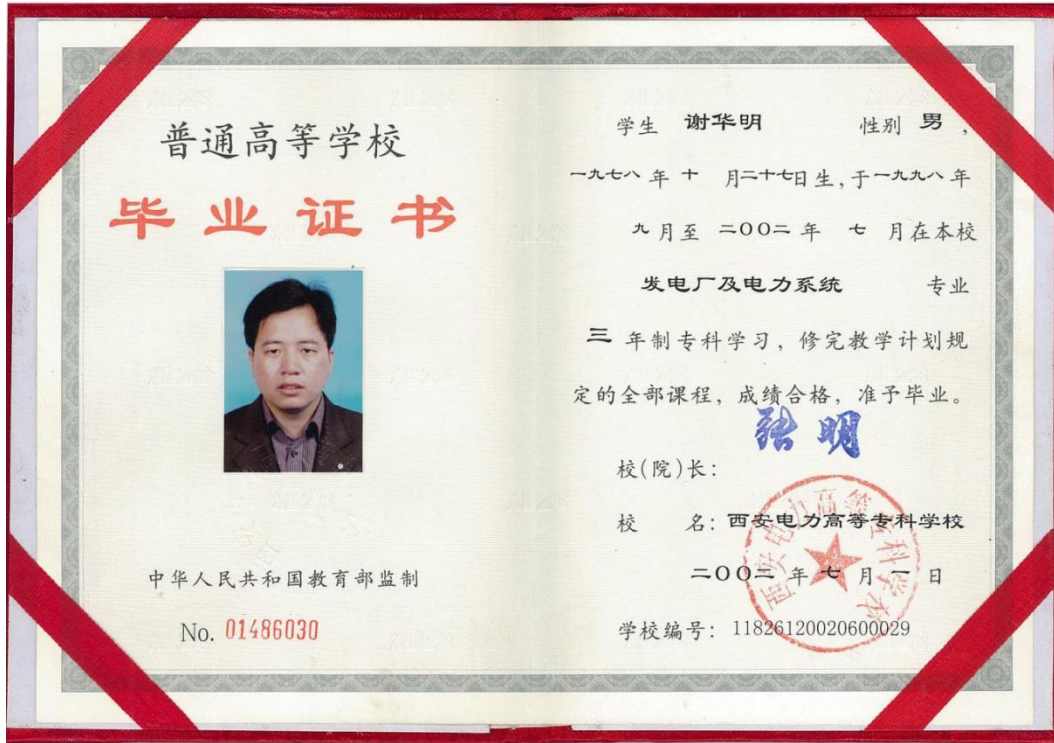 普通高等学校
毕业证书
中华人民共和国教育部监制
No. 01486030
学生 谢华明 性别 男，
一九七八年十月二十七日生，于一九九八年
九月至二00二年七月在本校
发电厂及电力系统 专业
三年制专科学习，修完教学计划规
定的全部课程，成绩合格，准予毕业。
张明
校(院)长：
校 名：西安电力高等专科学校
二00二年七月一日
学校编号：11826120020600029
西安电力高等专科学校